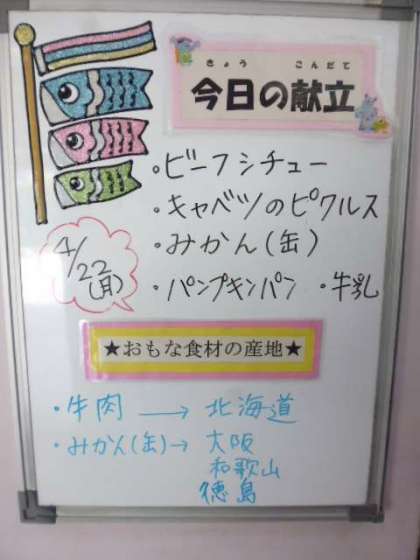 きょう こんだて
今日の献立
・ビーフシチュー
・キャベツのピクルス
・みかん(缶)
4/22(月)
・パンプキンパン ・牛乳
★おもな食材の産地★
・牛肉 → 北海道
・みかん(缶)→ 大阪
和歌山
徳島